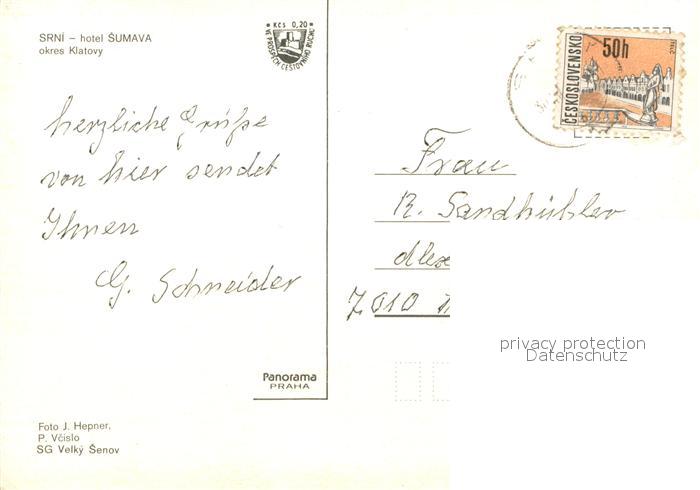 SRNÍ – hotel ŠUMAVA
okres Klatovy
• Kčs 0,20 •
VE PROSPĚCH CESTOVNÍHO RUCHU
ČESKOSLOVENSKO
50h
herzliche Grüße
von hier sendet
Ihnen
G. Schneider
Frau
R. Sandhübler
Alex
7010
privacy protection
Datenschutz
Panorama
PRAHA
Foto J. Hepner,
P. Včislo
SG Velký Šenov